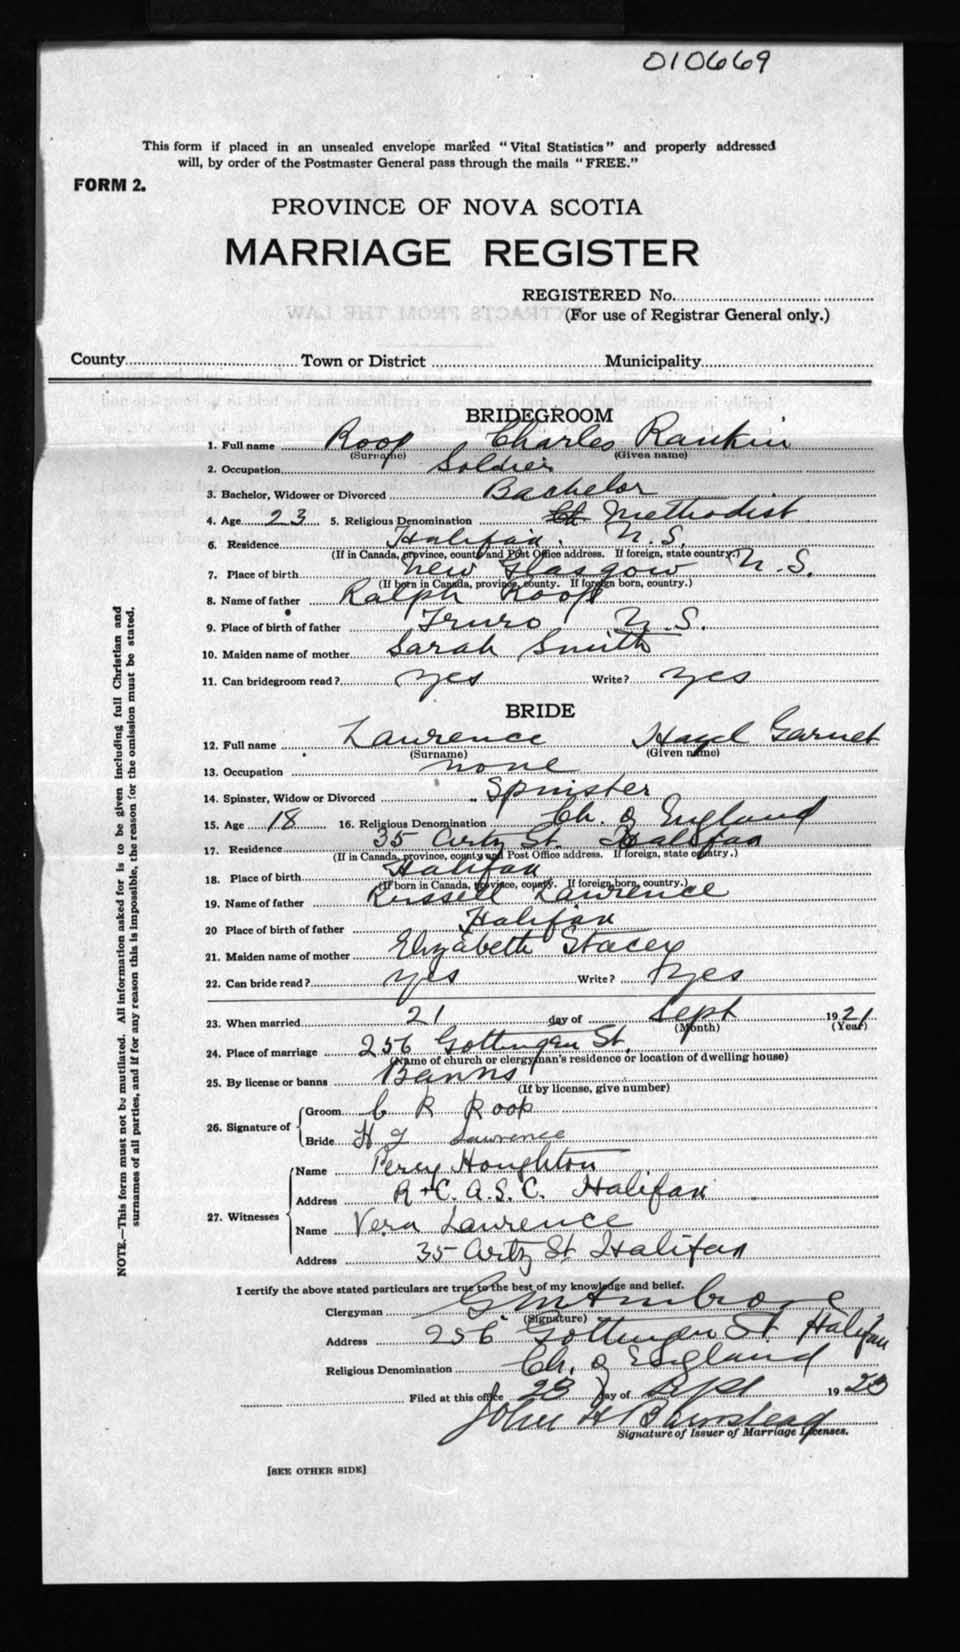 010669
This form if placed in an unsealed envelope marked "Vital Statistics" and properly addressed
will, by order of the Postmaster General pass through the mails "FREE."
FORM 2.
PROVINCE OF NOVA SCOTIA
MARRIAGE REGISTER
REGISTERED No.
(For use of Registrar General only.)
County Town or District Municipality
BRIDEGROOM
1. Full name Roop Charles Rankin
(Surname) (Given name)
2. Occupation Soldier
3. Bachelor, Widower or Divorced Bachelor
4. Age 23 5. Religious Denomination Ch Methodist
6. Residence Halifax. N.S.
(If in Canada, province, county and Post Office address. If foreign, state country.)
7. Place of birth New Glasgow N.S.
(If born in Canada, province, county. If foreign born, country.)
8. Name of father Ralph Roop
9. Place of birth of father Truro N.S.
10. Maiden name of mother Sarah Smith
11. Can bridegroom read? yes Write? yes
BRIDE
12. Full name Lawrence Hazel Garnet
(Surname) (Given name)
13. Occupation none
14. Spinster, Widow or Divorced Spinster
15. Age 18 16. Religious Denomination Ch. of England
17. Residence 35 Artz St. Halifax
(If in Canada, province, county and Post Office address. If foreign, state country.)
18. Place of birth Halifax
(If born in Canada, province, county. If foreign born, country.)
19. Name of father Russell Lawrence
20 Place of birth of father Halifax
21. Maiden name of mother Elizabeth Stacey
22. Can bride read? yes Write? yes
23. When married 21 day of Sept 1921
(Month) (Year)
24. Place of marriage 256 Gottingen St.
(Name of church or clergyman's residence or location of dwelling house)
25. By license or banns Banns
(If by license, give number)
26. Signature of Groom C R Roop
Bride H G Lawrence
27. Witnesses Name Percy Houghton
Address R.C.A.S.C. Halifax
Name Vera Lawrence
Address 35 Artz St Halifax
I certify the above stated particulars are true to the best of my knowledge and belief.
Clergyman G M Ambrose
(Signature)
Address 256 Gottingen St. Halifax
Religious Denomination Ch. of England
Filed at this office 23 day of Sept 1923
John H Barnstead
Signature of Issuer of Marriage Licenses.
[SEE OTHER SIDE]
NOTE.—This form must not be mutilated. All information asked for is to be given including full Christian and
surnames of all parties, and if for any reason this is impossible, the reason for the omission must be stated.
EXTRACTS FROM THE LAW